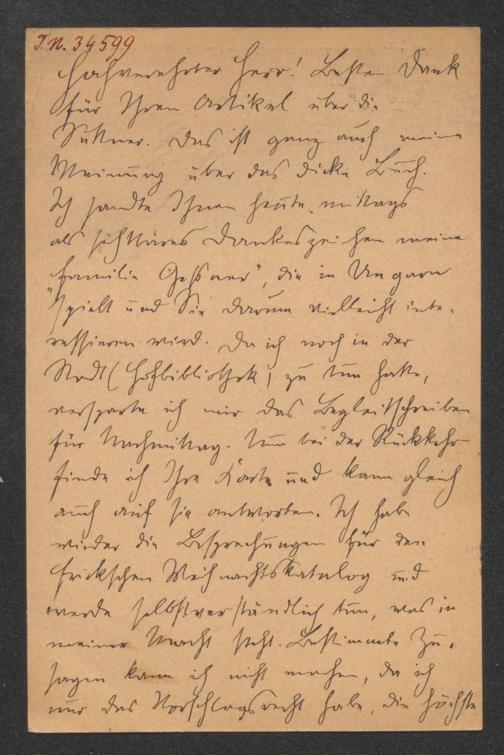 J.N. 34599
Hochverehrter Herr! Besten Dank
für Ihren Artikel über die
Suttner. Das ist ganz auch meine
Meinung über das dicke Buch.
Ich sandte Ihnen heute mittags
als sichtbares Dankeszeichen meine
"Familie Geßner", die in Ungarn
spielt und Sie darum vielleicht inte-
ressieren wird. Da ich noch in der
Stadt (Hofbibliothek) zu tun hatte,
versparte ich mir das Begleitschreiben
für Nachmittag. Nun bei der Rückkehr
finde ich Ihre Karte und kann gleich
auch auf sie antworten. Ich habe
wieder die Besprechungen für den
Frickschen Weihnachtskatalog und
werde selbstverständlich tun, was in
meiner Macht steht. Bestimmte Zu-
sagen kann ich nicht machen, da ich
nur das Vorschlagsrecht habe, die höchste